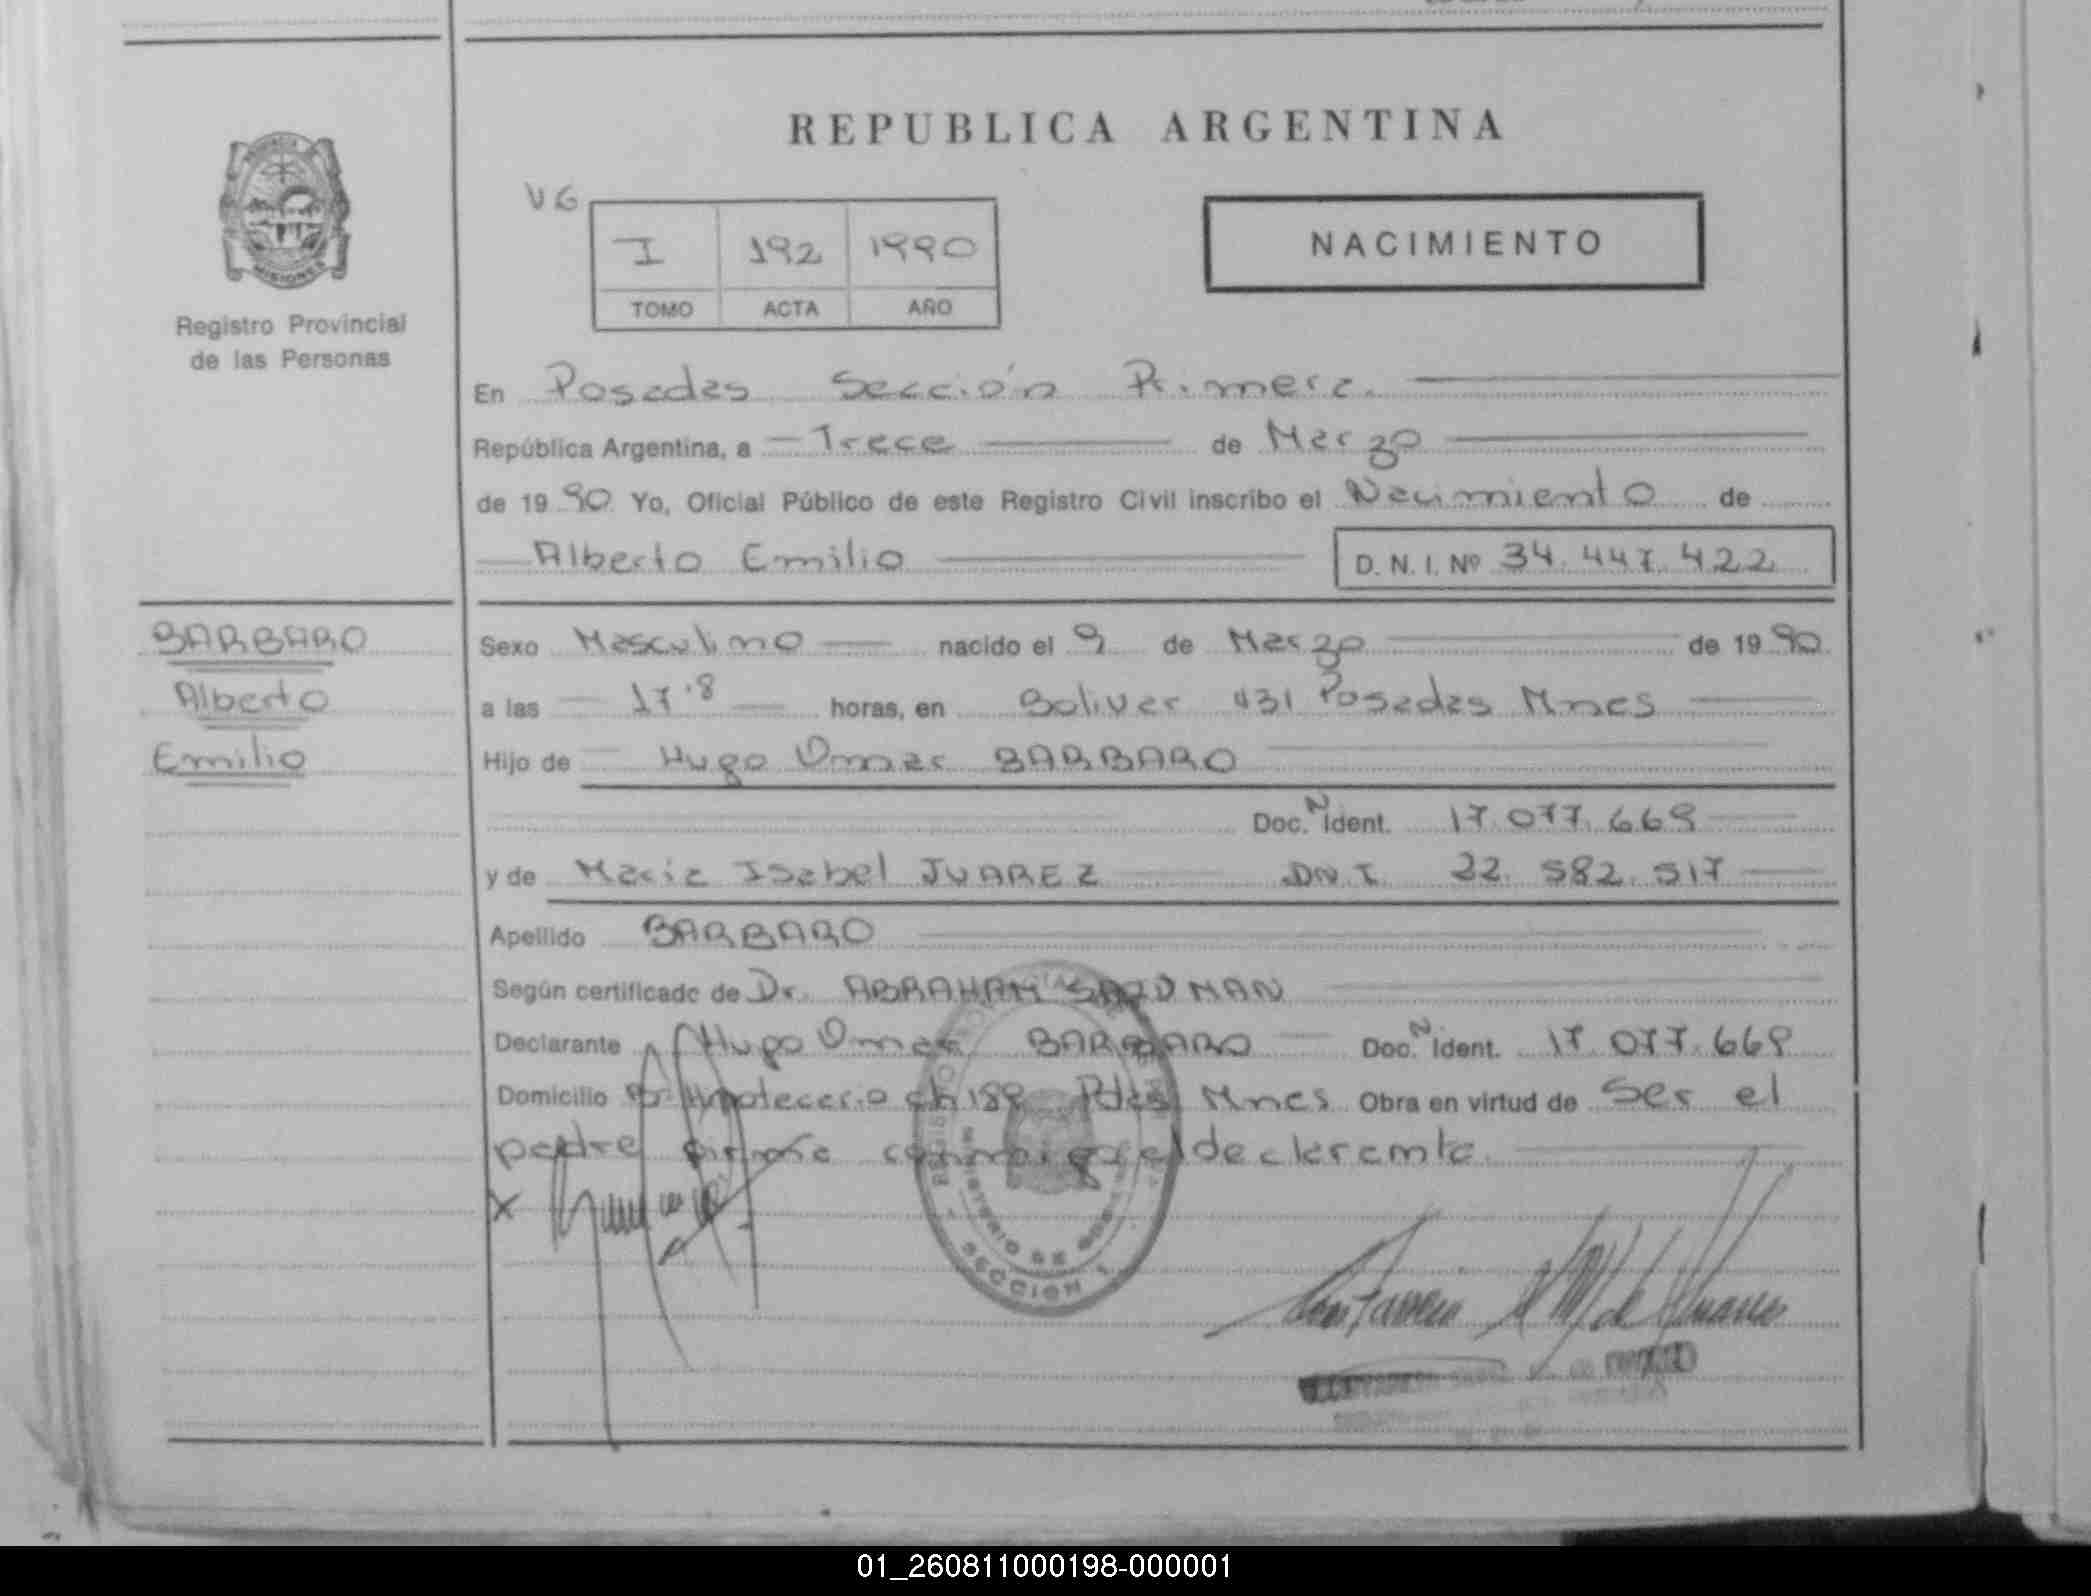 REPUBLICA ARGENTINA
MISIONES
Registro Provincial
de las Personas
V6
I 192 1990
TOMO ACTA AÑO
NACIMIENTO
En Posadas Sección Primera.
República Argentina, a Trece de Marzo
de 1990 Yo, Oficial Público de este Registro Civil inscribo el Nacimiento de
Alberto Emilio D. N. I. Nº 34.447.422
BARBARO
Alberto
Emilio
Sexo Masculino nacido el 9 de Marzo de 1990
a las 17.8 horas, en Bolivar 431 Posadas Mnes
Hijo de Hugo Omar BARBARO
Doc. N Ident. 17.077.669
y de Maria Isabel JUAREZ D.N.I. 22.582.517
Apellido BARBARO
Según certificado de Dr. ABRAHAM
Declarante Hugo Omar BARBARO Doc. N Ident. 17.077.669
Domicilio Hipotecario ch 189 Pdas Mnes Obra en virtud de Ser el
padre firma conmigo el declarante.
X
SECCION 1
01_260811000198-000001